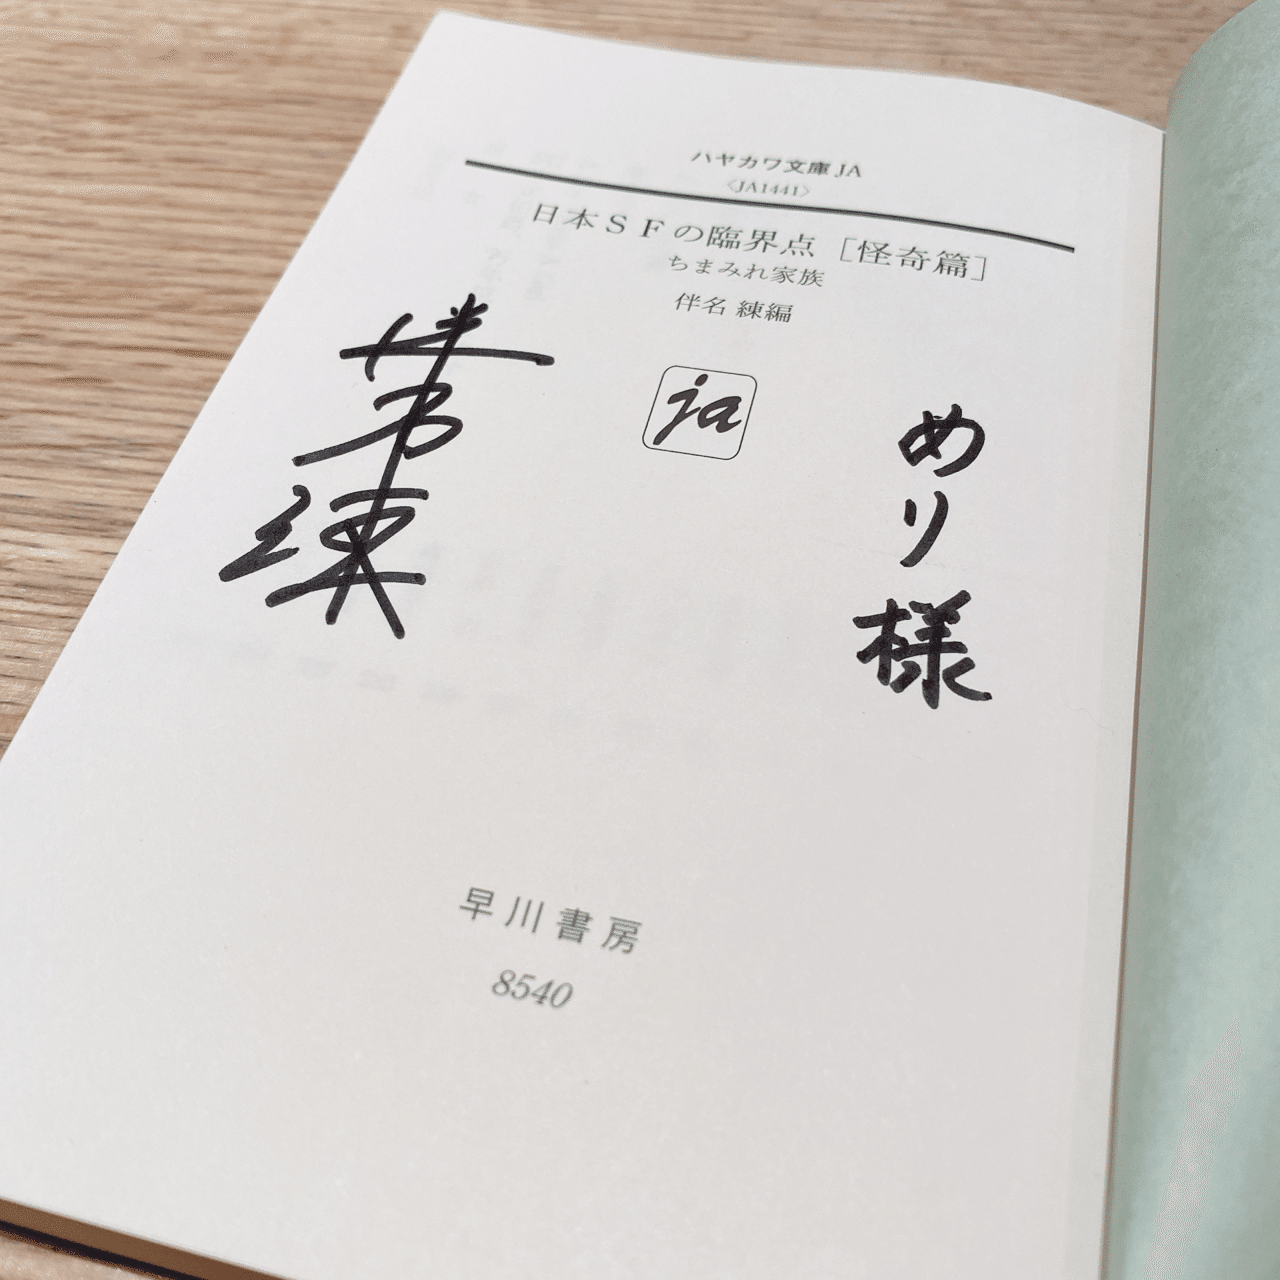 ハヤカワ文庫 JA
〈JA1441〉
日本ＳＦの臨界点［怪奇篇］
ちまみれ家族
伴名 練編
ja
めり様
伴名練
早川書房
8540